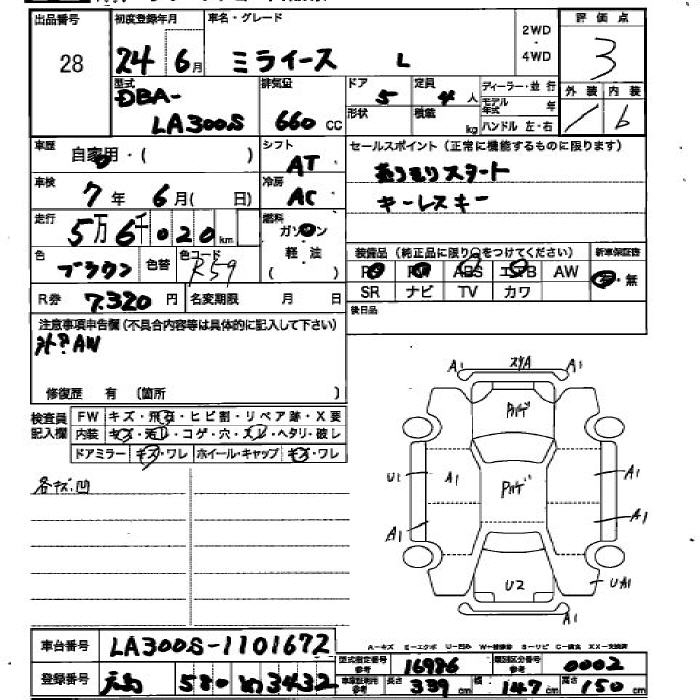 出品番号 初度登録年月 車名・グレード 評価点
28 24年 6月 ミライース L 2WD・4WD 3
型式 排気量 ドア 定員 ディーラー・並行 外装 内装
DBA- 5 4人 モデル年式 年
LA300S 660cc 形状 積載 kg ハンドル 左・右 b
車歴 自家用・( ) シフト AT セールスポイント(正常に機能するものに限ります)
車検 7年 6月( 日) 冷房 AC スタート
キーレスキー
走行 5万6千020km 燃料 ガソリン
軽・油
装備品(純正品に限り○をつけてください) 新車保証書
色 ブラウン 色替 色コード R59 PS PW ABS エアB AW 有・無
R券 7,320円 名変期限 月 日 SR ナビ TV カワ
後日品
注意事項申告欄(不具合内容等は具体的に記入して下さい)
外?AW
修復歴 有 〔箇所 〕
検査員記入欄 FW キズ・飛石・ヒビ割・リペア跡・X要
内装 キズ・汚れ・コゲ・穴・スレ・ヘタリ・破レ
ドアミラー キズ・ワレ ホイール・キャップ キズ・ワレ
各キズ.凹
A1 スリA A1
Pハゲ
U1 A1 A1
Pハゲ
A1 A1
U2 UA1
A1
A-キズ E-エクボ U-凹み W-補修跡 S-サビ C-腐食 XX-交換済
車台番号 LA300S-1101672
型式指定番号 参考 16986 類別区分番号 参考 0002
登録番号 580 3432
車庫証明用 参考 長さ 339cm 幅 147cm 高さ 150cm